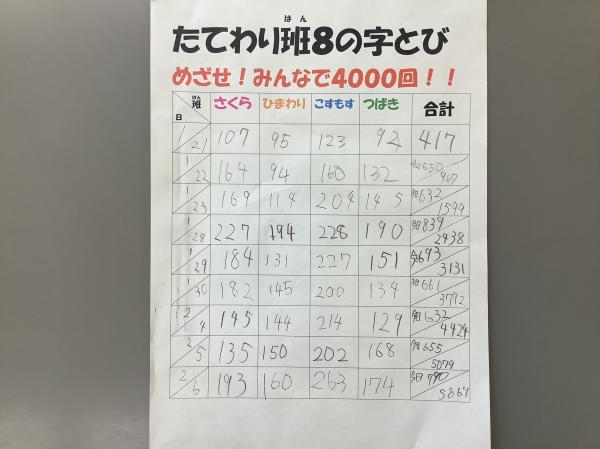 たてわり班8の字とび
はん
めざせ！みんなで4000回！！
班 はん 日 さくら ひまわり こすもす つばき 合計
1/21 107 95 123 92 417
1/22 164 94 160 132 今日550 967
1/23 169 114 204 145 今日632 1599
1/28 227 194 228 190 今日839 2438
1/29 184 131 227 151 今日693 3131
1/30 182 145 200 134 今日661 3792
2/4 145 144 214 129 今日632 4424
2/5 135 150 202 168 今日655 5079
2/6 193 160 263 174 今日790 5869